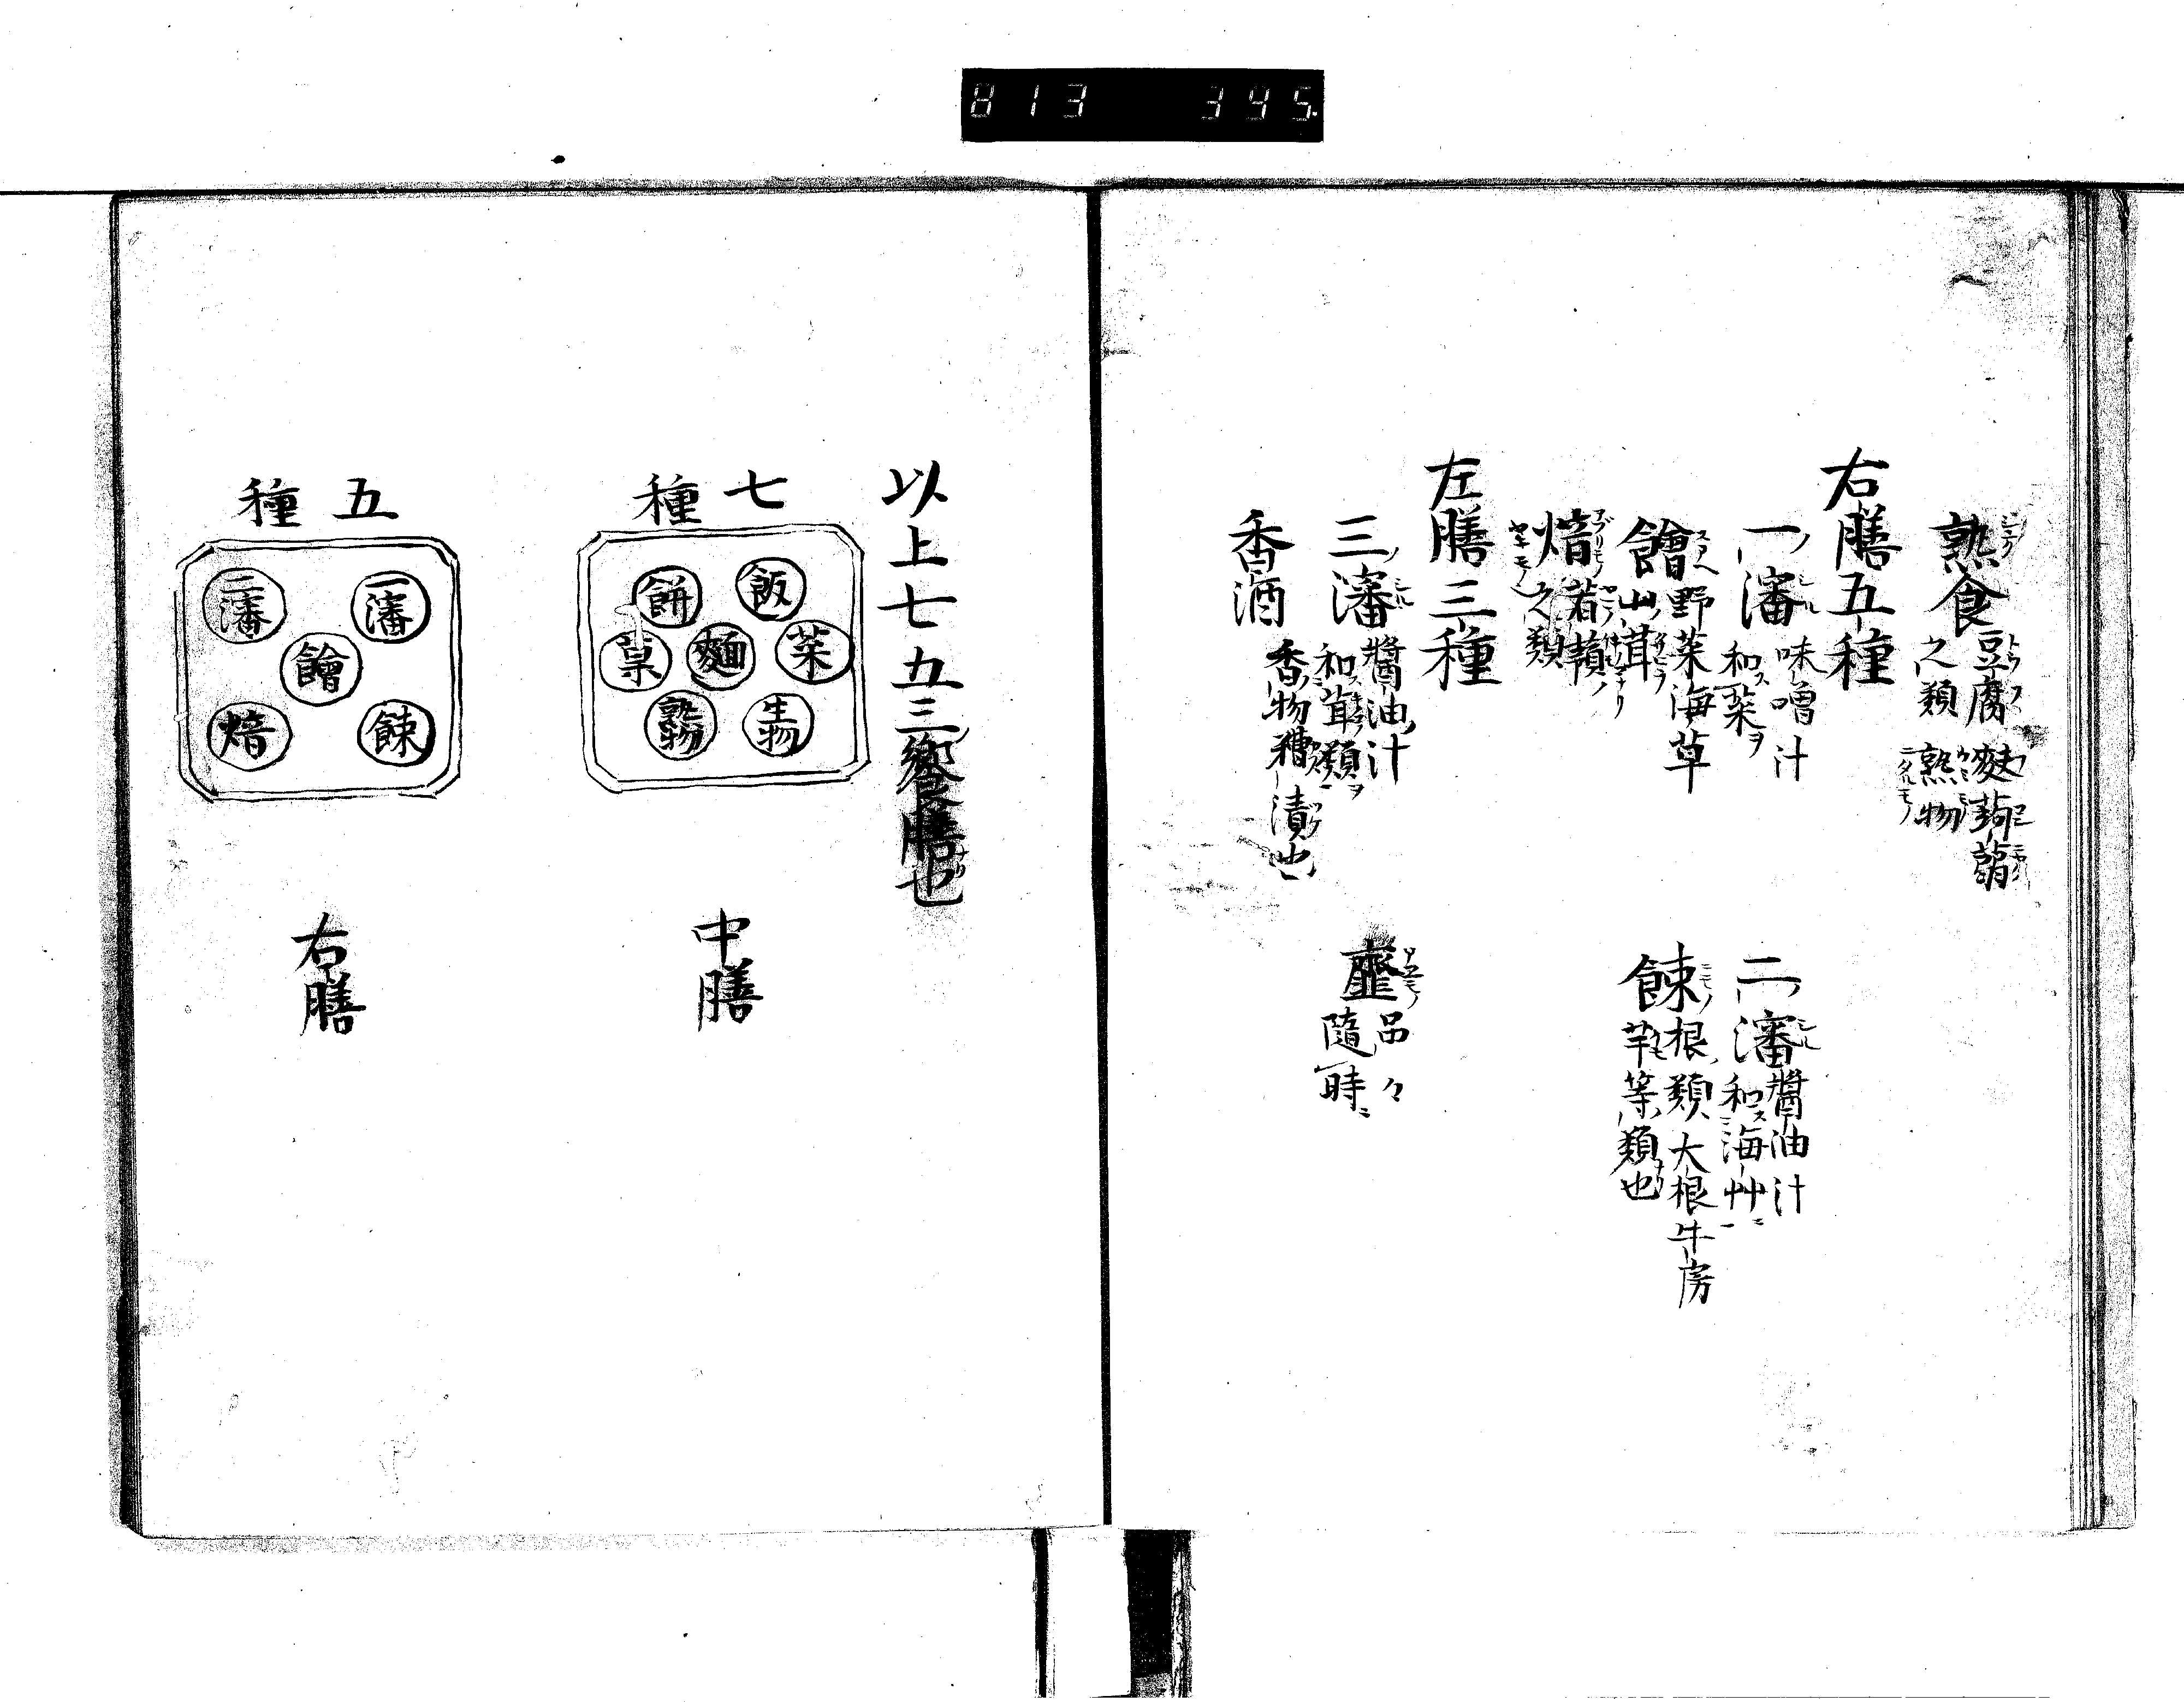 813 345
熟食 豆腐 麩 蒟蒻
之類 熟物
右膳五種
一ノ瀋 味噌汁
和菜ヲ
二ノ瀋 醬油汁
和海艸ニ
鱠 野菜海草
山茸
餗 根類大根牛房
芋等類也
焙 若
之類
左膳三種
三ノ瀋 醬油汁
和茸類ヲ
品々
隨時ニ
香酒
香物糟漬也
以上七五三饗膳也
七種
飯
餅
菜
麵
菓
生物
熟物
中膳
五種
一瀋
二瀋
鱠
餗
焙
右膳